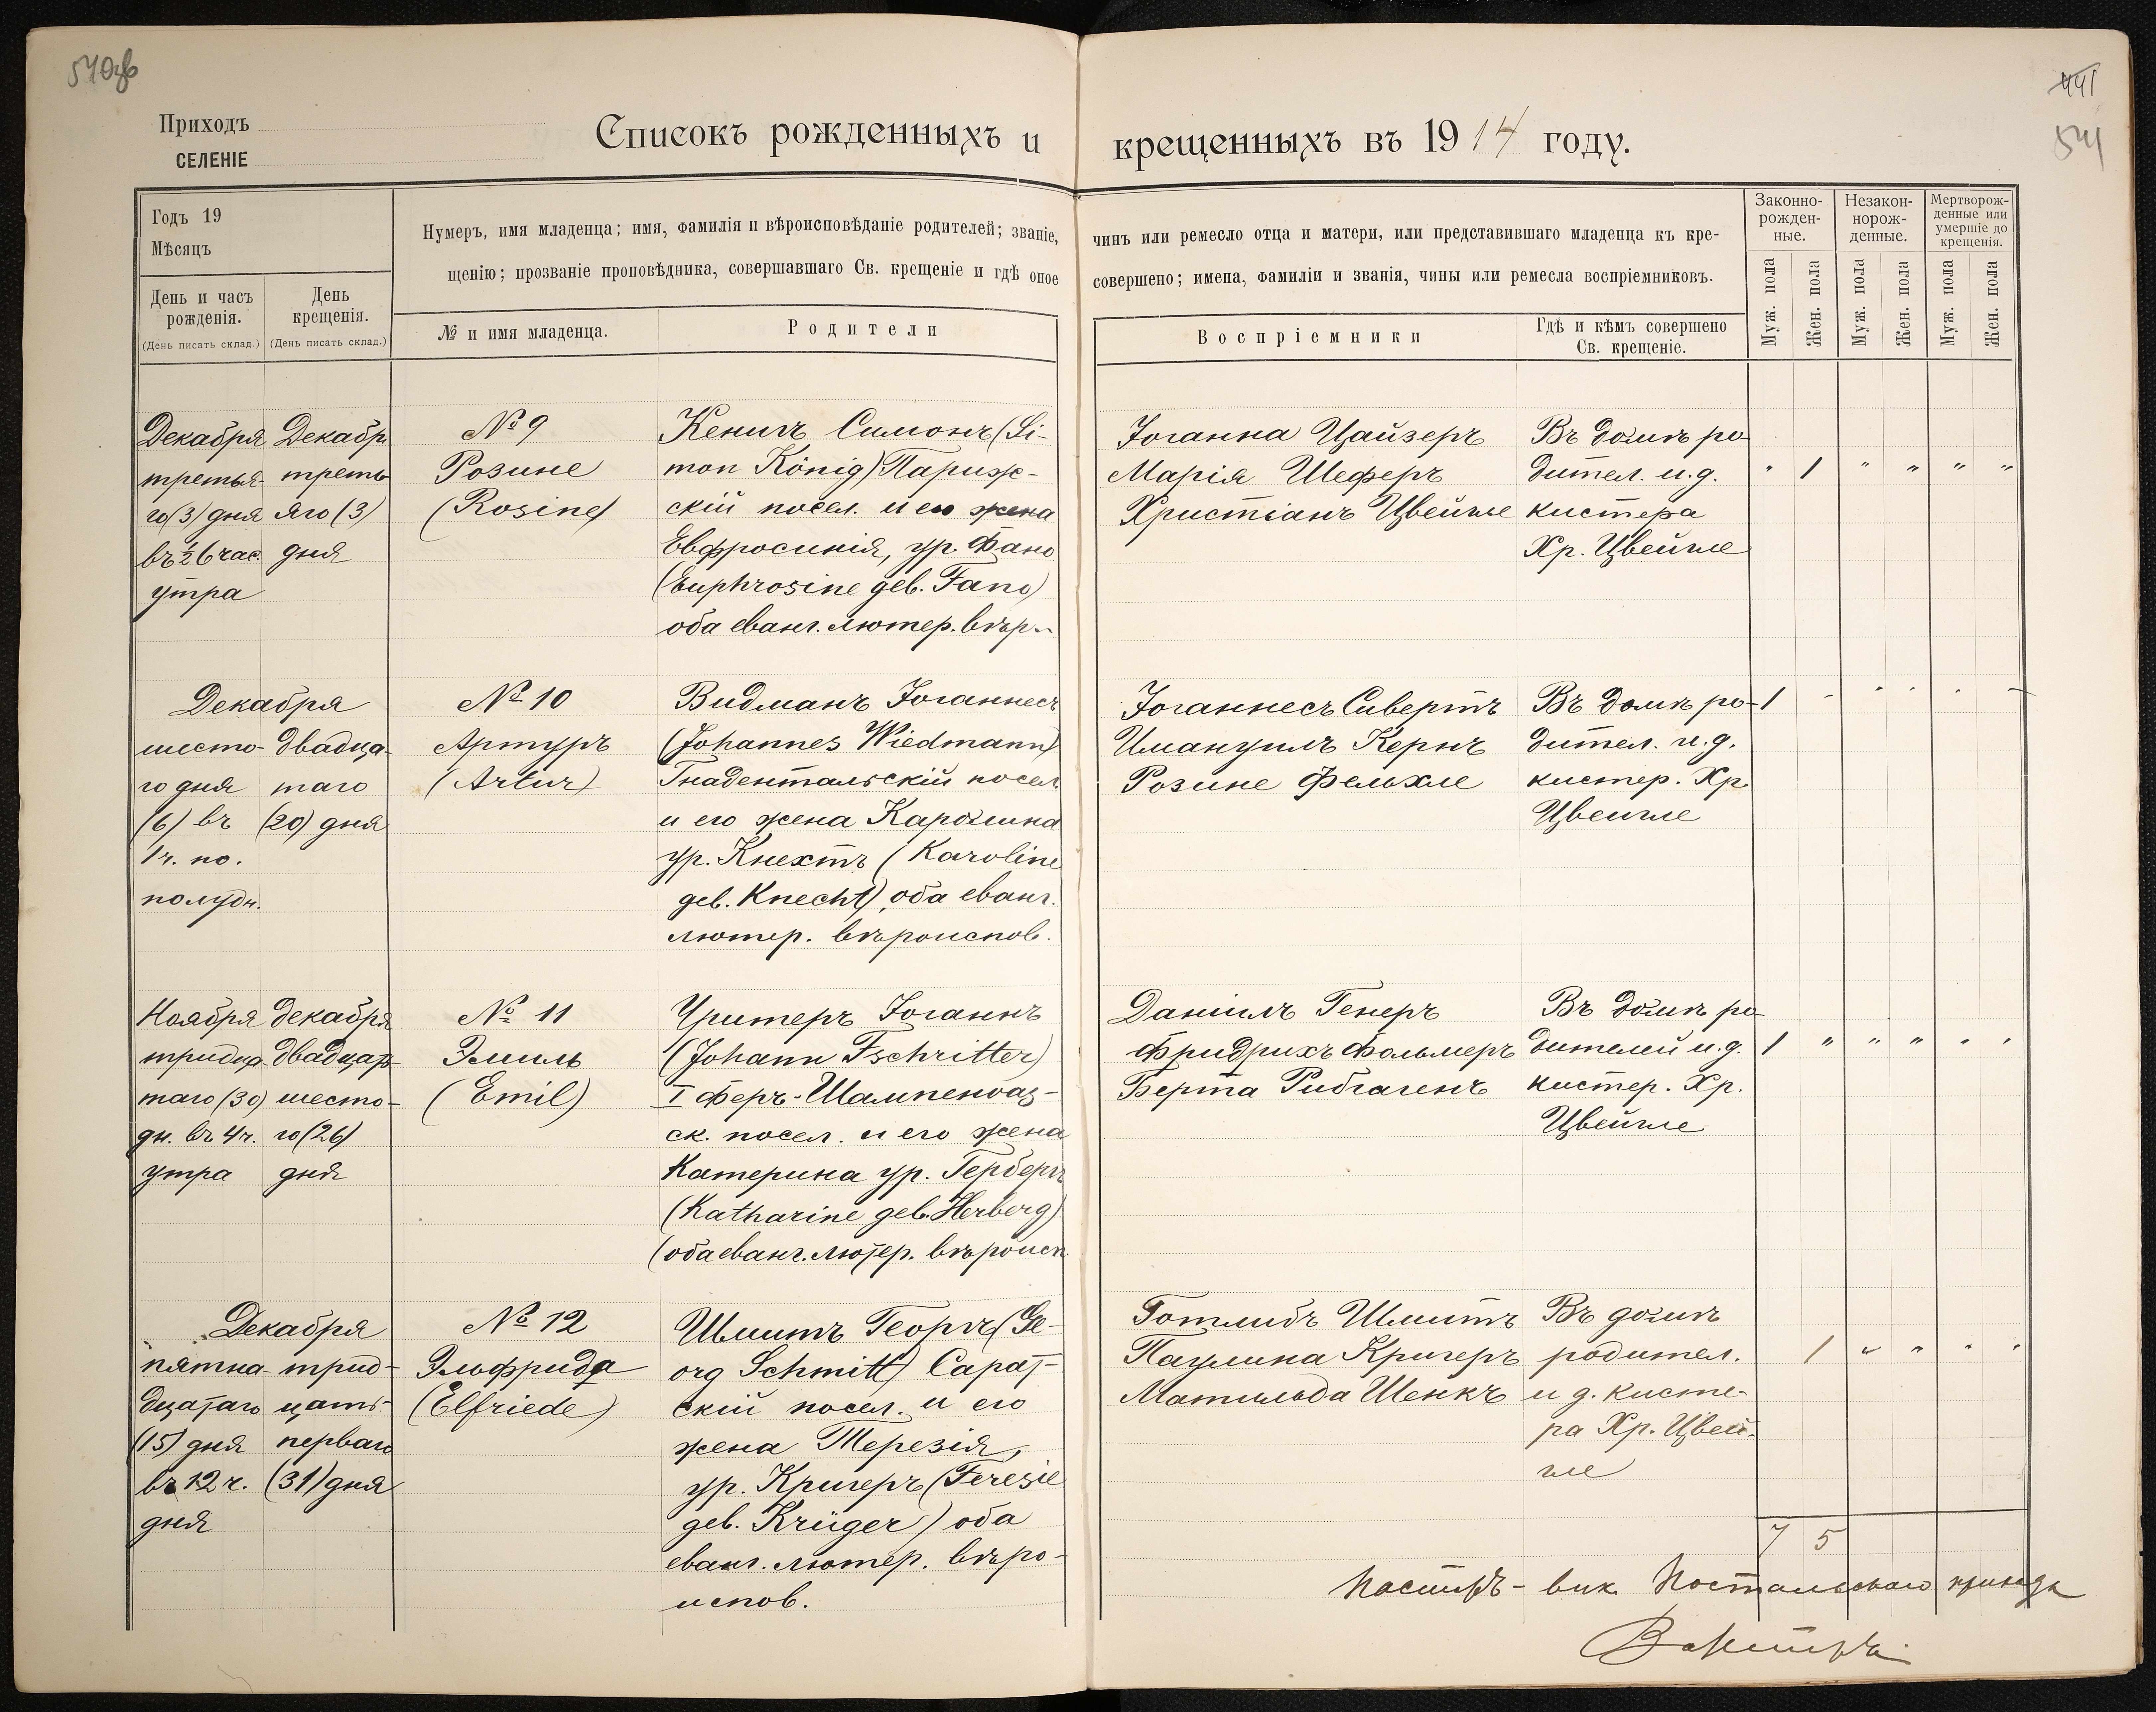 540зв
441
541
Приходъ
СЕЛЕНІЕ
Списокъ рожденныхъ и крещенныхъ въ 1914 году.
Годъ 19
Мѣсяцъ
День и часъ рожденія.
(День писать склад.)
День крещенія.
(День писать склад.)
Нумеръ, имя младенца; имя, фамилія и вѣроисповѣданіе родителей; званіе, чинъ или ремесло отца и матери, или представившаго младенца къ кре-
щенію; прозваніе проповѣдника, совершавшаго Св. крещеніе и гдѣ оное совершено; имена, фамиліи и званія, чины или ремесла воспріемниковъ.
№ и имя младенца.
Родители
Воспріемники
Гдѣ и кѣмъ совершено
Св. крещеніе.
Законно-
рожден-
ные.
Незакон-
норож-
денные.
Мертворож-
денные или
умершіе до
крещенія.
Муж. пола
Жен. пола
Муж. пола
Жен. пола
Муж. пола
Жен. пола
Декабря
третья-
го (3) дня
въ ½ 6 час.
утра
Декабр.
треть-
яго (3)
дня
№ 9
Розине
(Rosine)
Кенигъ Симонъ (Si-
mon König) Париж-
скій посел. и его жена
Евфросинія, ур. Фано
(Euphrosine geb. Fano)
оба еванг. лютер. вѣр.
Іоганна Цайзеръ
Марія Шеферъ
Христіанъ Цвейгле
Въ домѣ ро-
дител. и.д.
кистера
Хр. Цвейгле
" 1 " " " "
Декабря
шесто-
го дня
(6) въ
1 ч. по.
полудн.
двадца-
таго
(20) дня
№ 10
Артуръ
(Artur)
Видманъ Іоганнесъ
(Johannes Wiedmann)
Гнадентальскій посел.
и его жена Каролина
ур. Кнехтъ (Karoline
geb. Knecht), оба еванг.
лютер. вѣроиспов.
Іоганнесъ Сивертъ
Имануилъ Кернъ
Розине Фельхле
Въ домѣ ро-
дител. и.д.
кистер. Хр.
Цвейгле
1 " " " " "
Ноября
тридца-
таго (30)
дн. въ 4 ч.
утра
декабря
двадцать
шесто-
го (26)
дня
№ 11
Эмиль
(Emil)
Чритеръ Іоганнъ
(Johann Tschritter)
I Феръ-Шампеноаз-
ск. посел. и его жена
Катерина ур. Гербергъ
(Katharine geb. Herberg)
(оба еванг. лютер. вѣроисп.
Даніилъ Генеръ
Фридрихъ Фольмеръ
Берта Рибгагенъ
Въ домѣ ро-
дителей и.д.
кистер. Хр.
Цвейгле
1 " " " " "
Декабря
пятна-
дцатаго
(15) дня
въ 12 ч.
дня
трид-
цать
перваго
(31) дня
№ 12
Эльфрида
(Elfriede)
Шмитъ Георгъ (Ge-
org Schmitt) Сарат-
скій посел. и его
жена Терезія,
ур. Кригеръ (Teresie
geb. Krüger) оба
еванг. лютер. вѣро-
испов.
Готлибъ Шмитъ
Паулина Кригеръ
Матильда Шенкъ
Въ домѣ
родител.
и д. кисте-
ра Хр. Цвей-
гле
1 " " " "
7 5
Пасторъ-вик. Постальскаго прихода